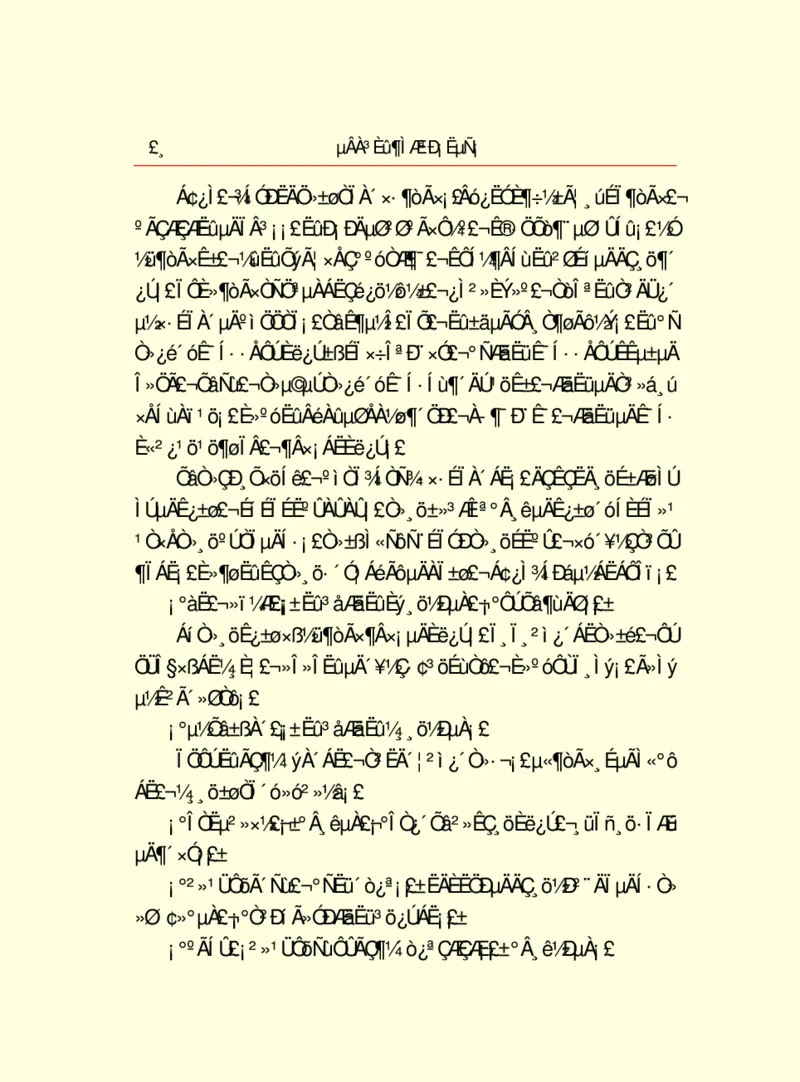 £¸ µÂÀ³Èû¶ÌÆªÐ¡ËµÑ¡
Á¢¿Ì£¬¾ÍÓÐËÄÖ»±øÒÏÀ´×·¶òÃ×¡£Âó¿ËÓÈ¶÷½±Ã¦¸úÉÏ¶òÃ×£¬
½ü¶òÃ×Ê±£¬½ûËûÕýÃ¦×ÅÇ°ºóÒÆ¶¯£¬ÊÔÍ¼¶ÂÍùËû²ØÉíµÄÄÇ¸ö¶´
¿Ú¡£ÏÔÈ»¶òÃ×ÒÑÖªµÀÁËÇé¿ö½ô¼±£¬¿Ì²»ÈÝ»º£¬ÒòÎªËûÒ²ÄÜ¿´
µ½×·ÉÏÀ´µÄºìÖÖÒÏ¡£ÒâÊ¶µ½Î£ÏÕ£¬Ëû±äµÃÓÂ¸Ò¶øÃô½Ý¡£Ëû°Ñ
Ò»¿é´óÊ¯Í··ÅÔÚÈë¿Ú±ßÉÏ×÷ÎªÐ¯×Ó£¬°ÑÆäËüÊ¯Í··ÅÔÚÊÊµ±µÄ
Î»ÖÃ£¬ÕâÑù£¬Ò»µ©µÚÒ»¿é´óÊ¯Í·Íù¶´ÄÚ¹öÊ±£¬ÆäËüµÄÒ²»á¸ú
×ÅÍùÀï¹ö¡£È»ºóËûÂéÀûµØÅÀ½ø¶´ÖÐ£¬À­¶¯Ð¯Ê¯£¬ÆäËüµÄÊ¯Í·
È«²¿¹ö¹ö¶øÏÂ£¬¶Â×¡ÁËÈë¿Ú¡£
ÕâÒ»ÇÐ¸Õ×öÍê£¬ºìÒÏ¾ÍÒÑ¾­×·ÉÏÀ´ÁË¡£ÄÇÊÇËÄ¸öÉ±ÆøÌÚ
ÌÚµÄÊ¿±ø£¬ÉíÉÏÉËºÛÀÛÀÛ¡£Ò»¸ö±»³ÆÎª°Â¸êµÄÊ¿±ø´óÍÈÉÏ»¹
¹Ò×ÅÒ»¸öºÚÒÏµÄÍ·¡£Ò»±ßÌ«ÑôÑ¨ÉÏÓÐÒ»¸öÉËºÛ£¬×ó´¥½ÇÒ²ÕÛ
¶ÏÁË¡£È»¶øËûÊÇÒ»¸ö·´Ó¦ÁéÃôµÄÀÏ±ø£¬Á¢¿Ì¾ÍÐáµ½ÁËÁÔÎï¡£
¡°àË£¬»ï¼ÆÃÇ¡±Ëû³åÆäËûÈý¸ö½ÐµÀ£º¡°ÔÚÕâ¶ùÄØ¡£¡±
ÁíÒ»¸öÊ¿±ø×ß½ü¶òÃ×¶Â×¡µÄÈë¿Ú¡£Ï¸Ï¸²ì¿´ÁËÒ»±é£¬ÔÚ
ÖÜÎ§×ßÁË¼¸È¦£¬»Î»ÎËûµÄ´¥½Ç·¢³öÉùÒô£¬È»ºóÔÙÏ¸Ìý¡£Ã»Ìý
µ½Ê²Ã´»ØÒô¡£
¡°µ½Õâ±ßÀ´£¡¡±Ëû³åÆäËû¼¸¸ö½ÐµÀ¡£
ÏÖÔÚËûÃÇ¶¼¹ýÀ´ÁË£¬Ò²ËÄ´¦²ì¿´Ò»·¬¡£µ«¶òÃ×¸ÉµÃÌ«°ô
ÁË£¬¼¸¸ö±øÒÏ´ó»ó²»½â¡£
¡°ÎÒËµ²»×¼£¬¡±°Â¸êµÀ£º¡°ÎÒ¿´Õâ²»ÊÇ¸öÈë¿Ú£¬¸üÏñ¸ö·ÏÆú
µÄ¶´×Ó¡£¡±
¡°²»¹ÜÔõÃ´Ñù£¬°ÑËü´ò¿ª¡£¡±ËÄÈËÖÐµÄÄÇ¸ö½Ð²¨ÄÏµÄÍ·Ò»
»Ø·¢»°µÀ£º¡°Ò²ÐíÃ»ÓÐÆäËü³ö¿ÚÁË¡£¡±
¡°ºÃÍÛ£¡²»¹ÜÔõÑùÔÛÃÇ¶¼´ò¿ªÇÆÇÆ¡£¡±°Â¸ê½ÐµÀ¡£